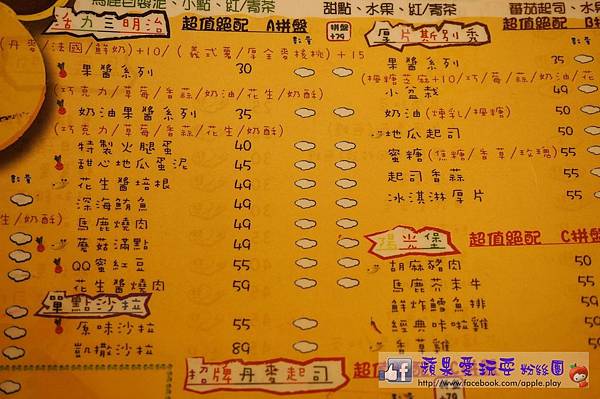 馬鹿自製泥、小點、紅/青茶
活力三明治 超值絕配 A拼盤 拼盤+79
(丹麥/法國/鮮奶)+10/(義式蔥/厚全麥核桃)+15
果醬系列 30
(巧克力/草莓/香蒜/奶油/花生/奶酥)
奶油果醬系列 35
(巧克力/草莓/香蒜/花生/奶酥)
特製火腿蛋 40
甜心地瓜蛋泥 45
花生醬培根 49
深海鮪魚 49
馬鹿燒肉 49
蘑菇滿點 49
QQ蜜紅豆 55
花生醬燒肉 59
單點沙拉
原味沙拉 55
凱撒沙拉 89
招牌丹麥起司
甜點、水果、紅/青茶
番茄起司、水
厚片斯別秀 超值絕配 B拼
果醬系列 35
(楓糖芝麻+10/巧/草莓/奶油/花
小盆栽 49
奶油(煉乳/楓糖) 50
地瓜起司 50
蜜糖(焦糖/香草/玫瑰) 55
起司香蒜 55
冰淇淋厚片 55
陽光堡 超值絕配 C拼盤
胡麻豬肉 50
馬鹿芥末牛 55
鮮炸鱈魚排 59
經典咔啦雞 59
香草雞 59
超值絕配
+79
生/奶酥)
蘋果愛玩耍 粉絲團
http://www.facebook.com/apple.play